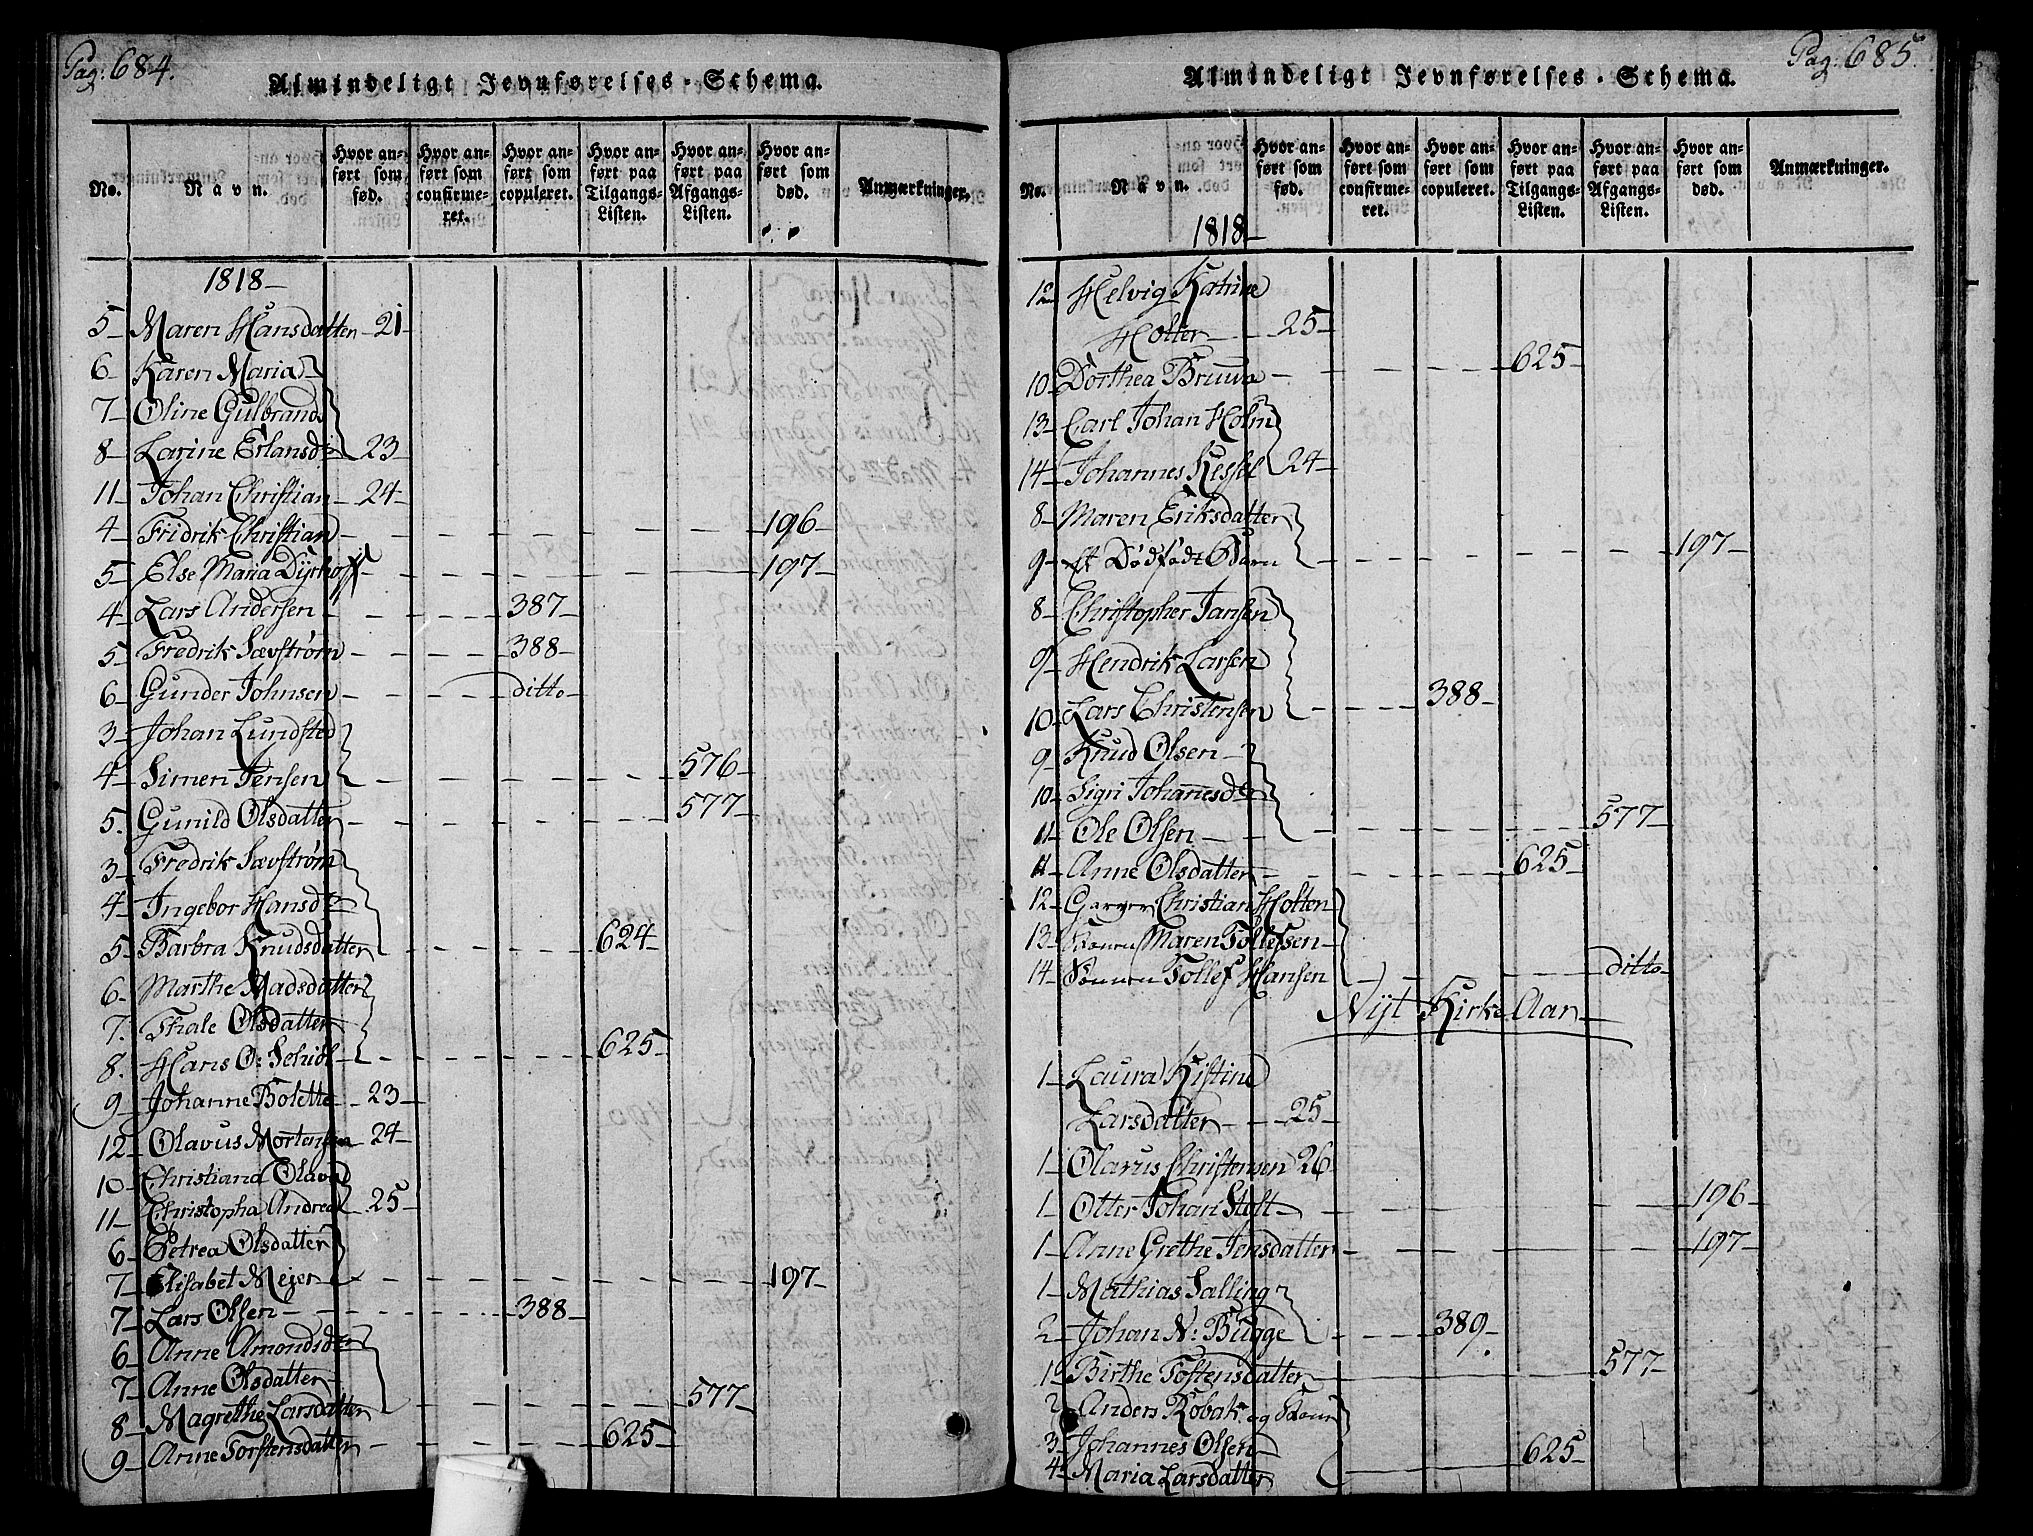 Pag: 684.
Almindeligt Jevnførelses-Schema.
No. Navn. Hvor anført som fød. Hvor anført som confirmeret. Hvor anført som copuleret. Hvor anført paa Tilgangs-Listen. Hvor anført paa Afgangs-Listen. Hvor anført som død. Anmærkninger.
1818
5 Maren Hansdatter 21
6 Karen Maria
7 Oline Gulbrands
8 Larine Erlandsdr 23
11 Johan Christian 24
4 Fridrik Christian 196
5 Else Maria Dyrhoff 197
4 Lars Andersen 387
5 Fredrik Sævstrøm 388
6 Gunder Johnsen ditto
3 Johan Lundsted
4 Simen Jensen 576
5. Gunild Olsdatter 577
3 Fredrik Sævstrøm
4 Ingebor Hansdr
5 Barbra Knudsdatter 624
6 Marthe Madsdatter
7. Thale Olsdatter
8. Hans O: Schidl 625
9 Johanne Bolette 23
12 Olavus Mortensen 24
10 Christiand Olava
11 Christopha Andrea 25
6 Petrea Olsdatter
7 Elisabet Mejer 197
7 Lars Olsen 388
6 Anne Amondsdtr
7 Anne Olsdatter
8 Magrethe Larsdatter 577
9 Anne Torstensdatter 625
Pag: 685.
Almindeligt Jevnførelses-Schema.
No. Navn. Hvor anført som fød. Hvor anført som confirmeret. Hvor anført som copuleret. Hvor anført paa Tilgangs-Listen. Hvor anført paa Afgangs-Listen. Hvor anført som død. Anmærkninger.
1818
12 Helvig Katrine
Holter 25
10 Dorthea Bruun 625
13 Carl Johan Holm
14 Johannes Kessel 24
8 Maren Eriksdatter
9 Et Dødfødt Barn 197
8 Christopher Jansen
9 Hendrik Larsen
10 Lars Christensen 388
9 Knud Olsen
10 Sigri Johannesdr
11 Ole Olsen 577
11 Anne Olsdatter 625
12 Christian Holten
13 Maren Tollefsen
14 Tollef Hansen ditto
Nyt Kirke Aar
1 Laura Kistine
Larsdatter 25
1 Olarus Christensen 26
1 Otter Johan Stolt 196
1 Anne Grethe Jensdatter 197
1 Mathias Salling
2 Johan N: Bugge 389
1 Birthe Tostensdatter 577
2 Anders Robak og
3 Johannes Olsen
4 Maria Larsdatter 625